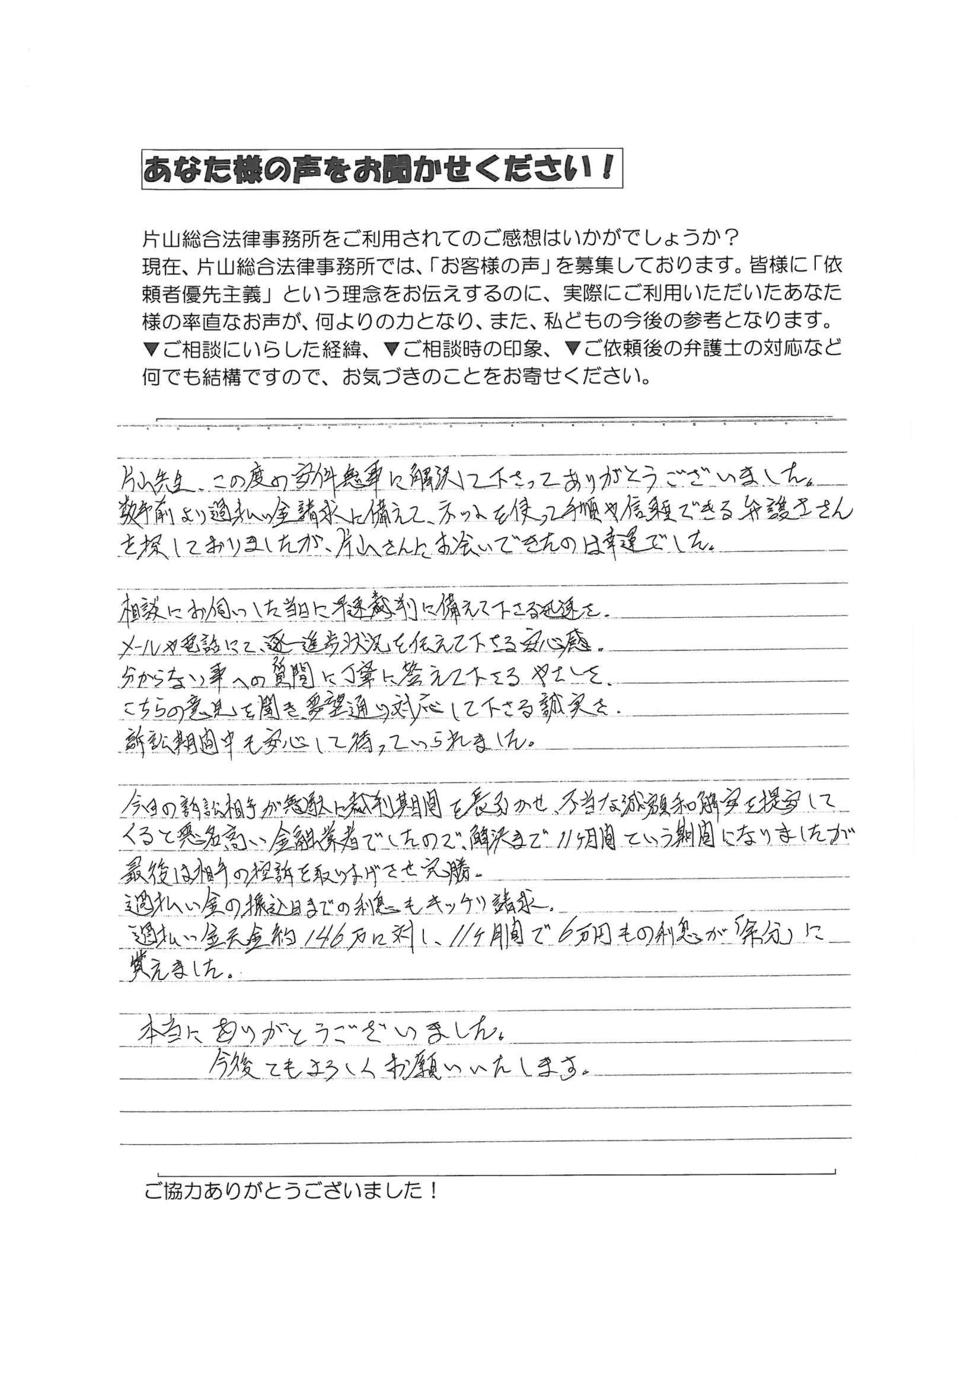 あなた様の声をお聞かせください！
片山総合法律事務所をご利用されてのご感想はいかがでしょうか？
現在、片山総合法律事務所では、「お客様の声」を募集しております。皆様に「依
頼者優先主義」という理念をお伝えするのに、実際にご利用いただいたあなた
様の率直なお声が、何よりの力となり、また、私どもの今後の参考となります。
▼ご相談にいらした経緯、▼ご相談時の印象、▼ご依頼後の弁護士の対応など
何でも結構ですので、お気づきのことをお寄せください。
片山先生、この度の案件無事に解決して下さってありがとうございました。
数年前より過払い金請求に備えて、ネットを使って手順や信頼できる弁護士さん
を探しておりましたが、片山さんにお会いできたのは幸運でした。
相談にお伺いした当日に早速裁判に備えて下さる迅速さ。
メールや電話にて、逐一進歩状況を伝えて下さる安心感。
分からない事への質問に丁寧に答えて下さるやさしさ。
こちらの意見を聞き、要望通り対応して下さる誠実さ。
訴訟期間中も安心して待っていられました。
今回の訴訟相手が無駄に裁判期間を長引かせ、不当な減額和解案を提案して
くると悪名高い金融業者でしたので、解決まで11ヶ月間という期間になりましたが
最後は相手の控訴を取り下げさせ完勝。
過払い金の振込日までの利息もキッチリ請求。
過払い金元金約146万に対し、11ヶ月間で6万円もの利息が「余分」に
貰えました。
本当にありがとうございました。
今後ともよろしくお願いいたします。
ご協力ありがとうございました！